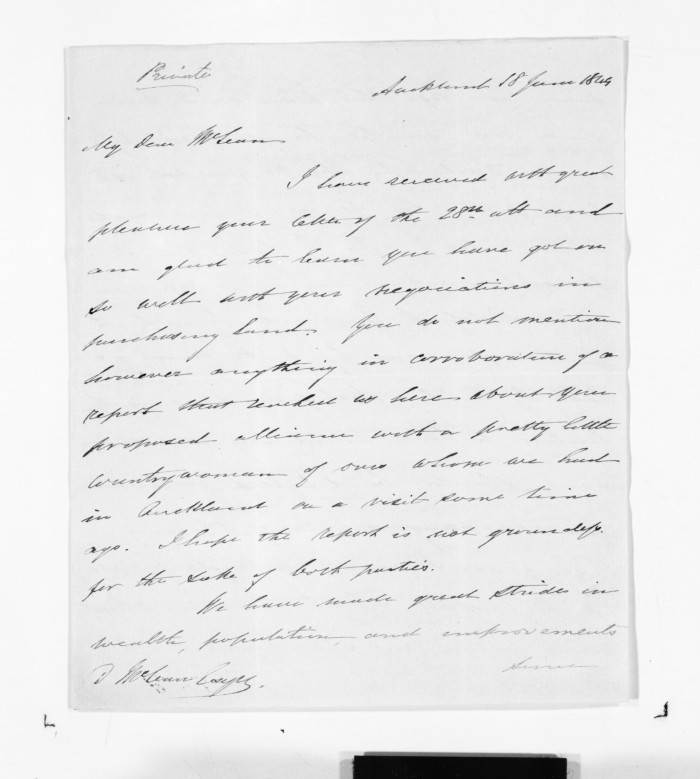 Private
Auckland 18 June 1849
My Dear McLean
I have received with great
pleasure your letter of the 28th ult and
am glad to learn you have got on
so well with your negociations in
purchasing land. You do not mention
however anything in corroboration of a
report that reached us here about your
proposed alliance with a pretty little
countrywoman of ours whom we had
in Auckland on a visit some time
ago. I hope the report is not groundless
for the sake of both parties.
We have made great strides in
wealth, population, and improvements
since
D McLean Esqre.